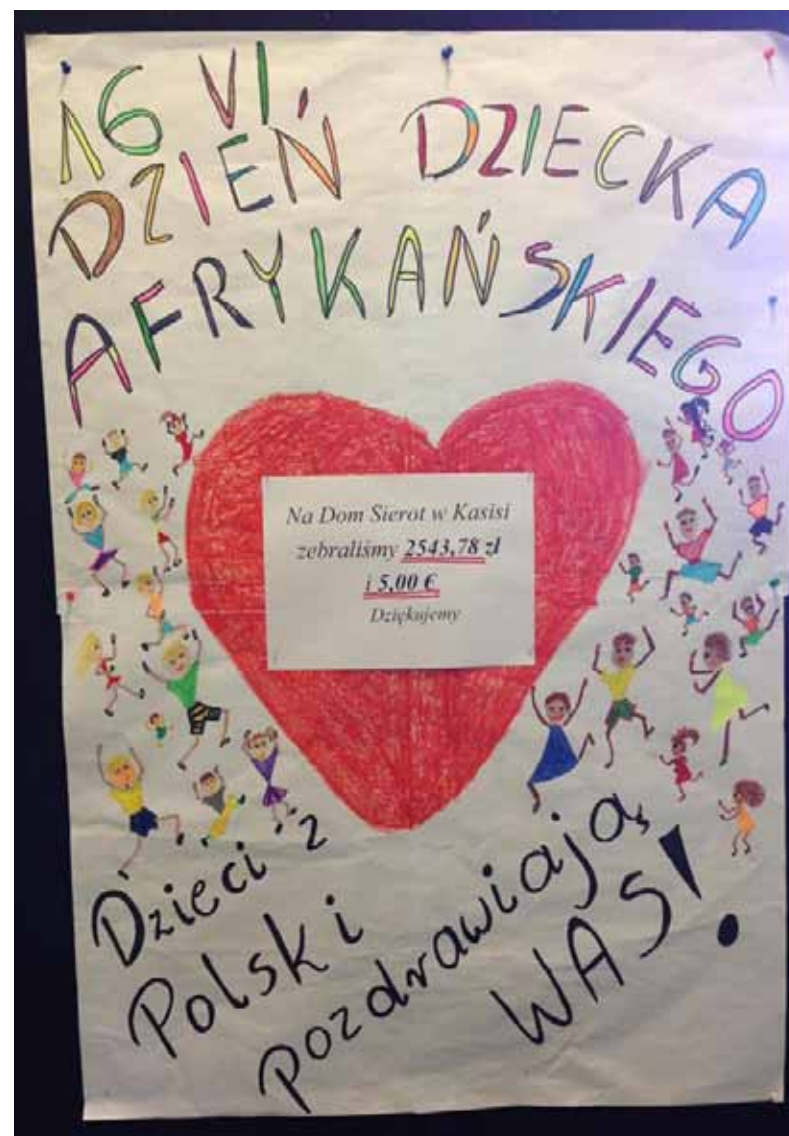 16 VI.
DZIEŃ DZIECKA
AFRYKAŃSKIEGO
Na Dom Sierot w Kasisi
zebraliśmy 2543,78 zł
i 5,00 €
Dziękujemy
Dzieci z
Polski
pozdrawiają
WAS!